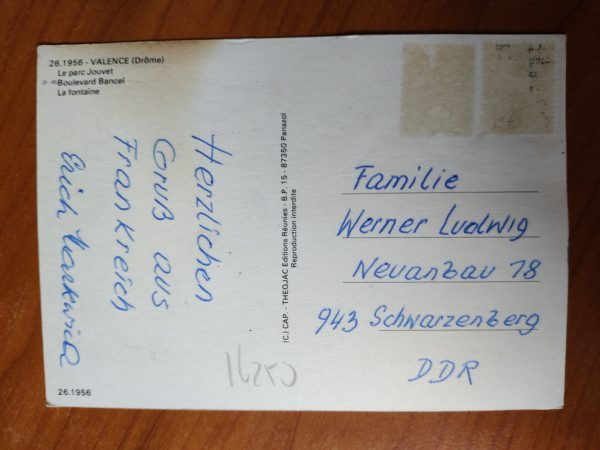 26.1956 - VALENCE (Drôme)
Le parc Jouvet
Boulevard Bancel
La fontaine
Herzlichen
Gruß aus
Frankreich
Erich
26.1956
(C.) CAP. - THEOJAC Editions Réunies - B.P. 15 - 87350 Panazol
Reproduction interdite
Familie
Werner Ludwig
Neuanbau 18
943 Schwarzenberg
DDR